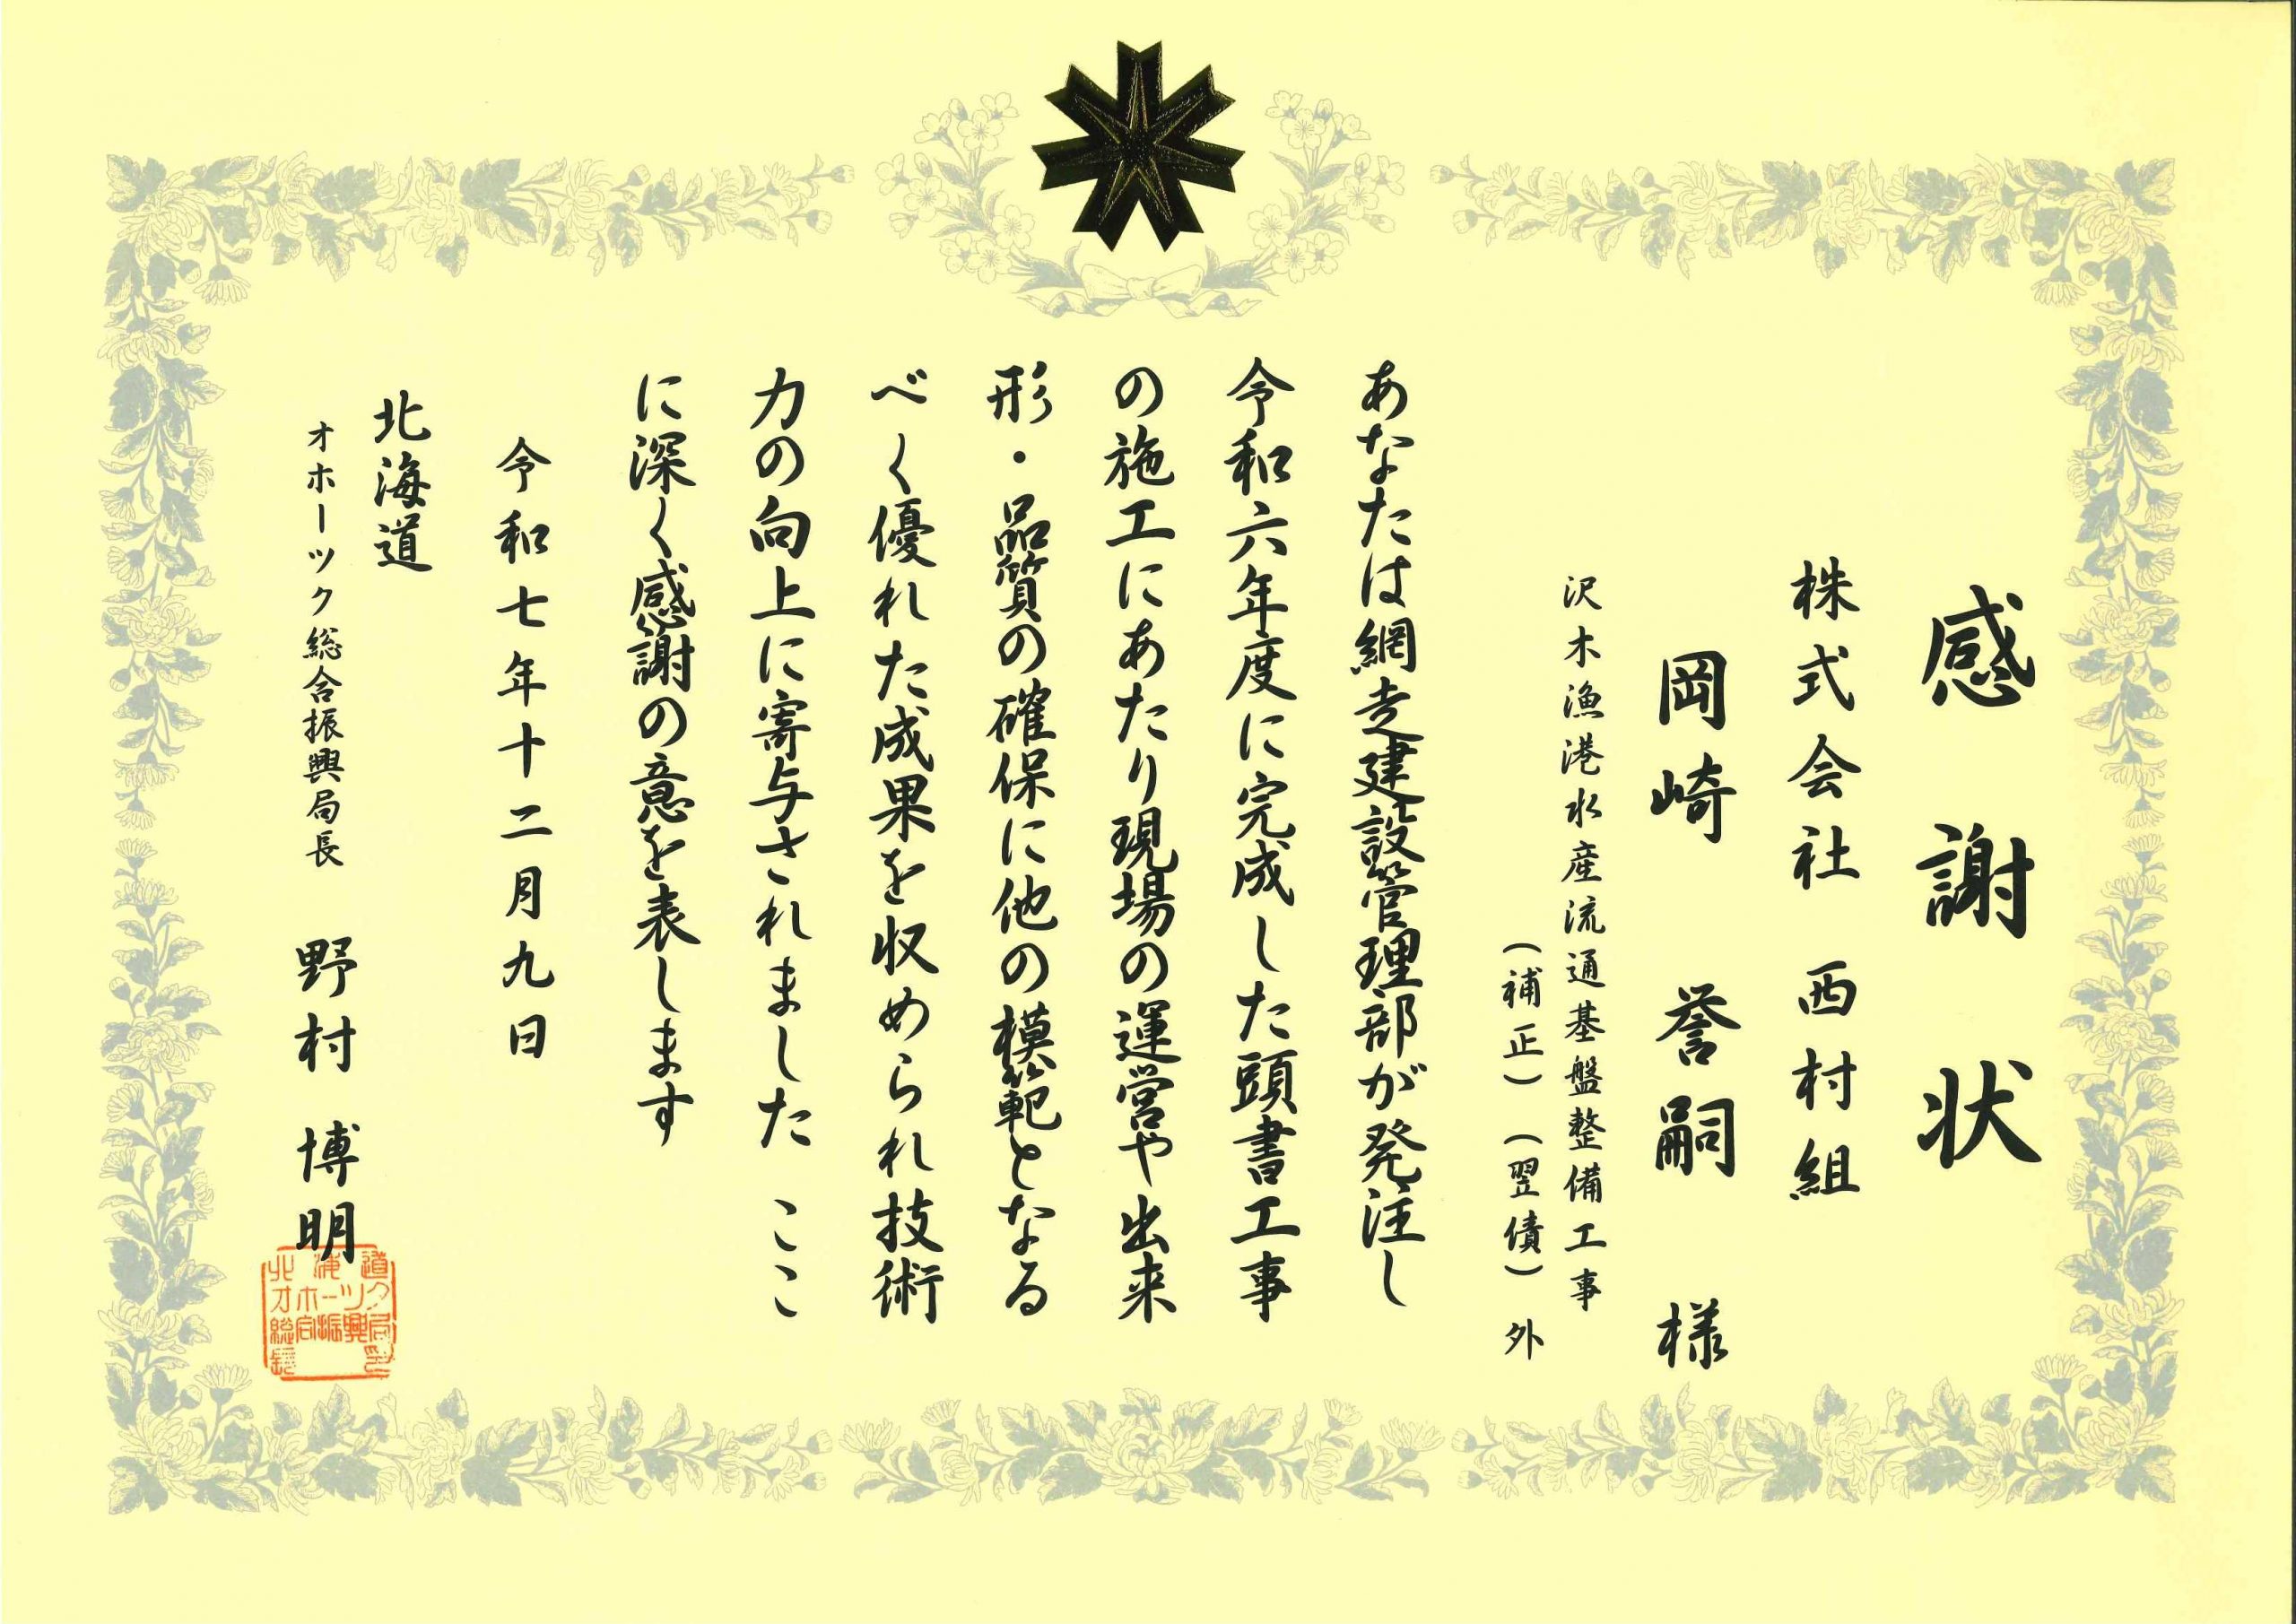 感謝状
株式会社 西村組
岡崎 誉嗣 様
沢木漁港水産流通基盤整備工事
(補正)(翌債)外
あなたは網走建設管理部が発注し
令和六年度に完成した頭書工事
の施工にあたり現場の運営や出来
形・品質の確保に他の模範となる
べく優れた成果を収められ技術
力の向上に寄与されました ここ
に深く感謝の意を表します
令和七年十二月九日
北海道
オホーツク総合振興局長 野村 博明
北海道
オホーツク
総合振興局
長之印